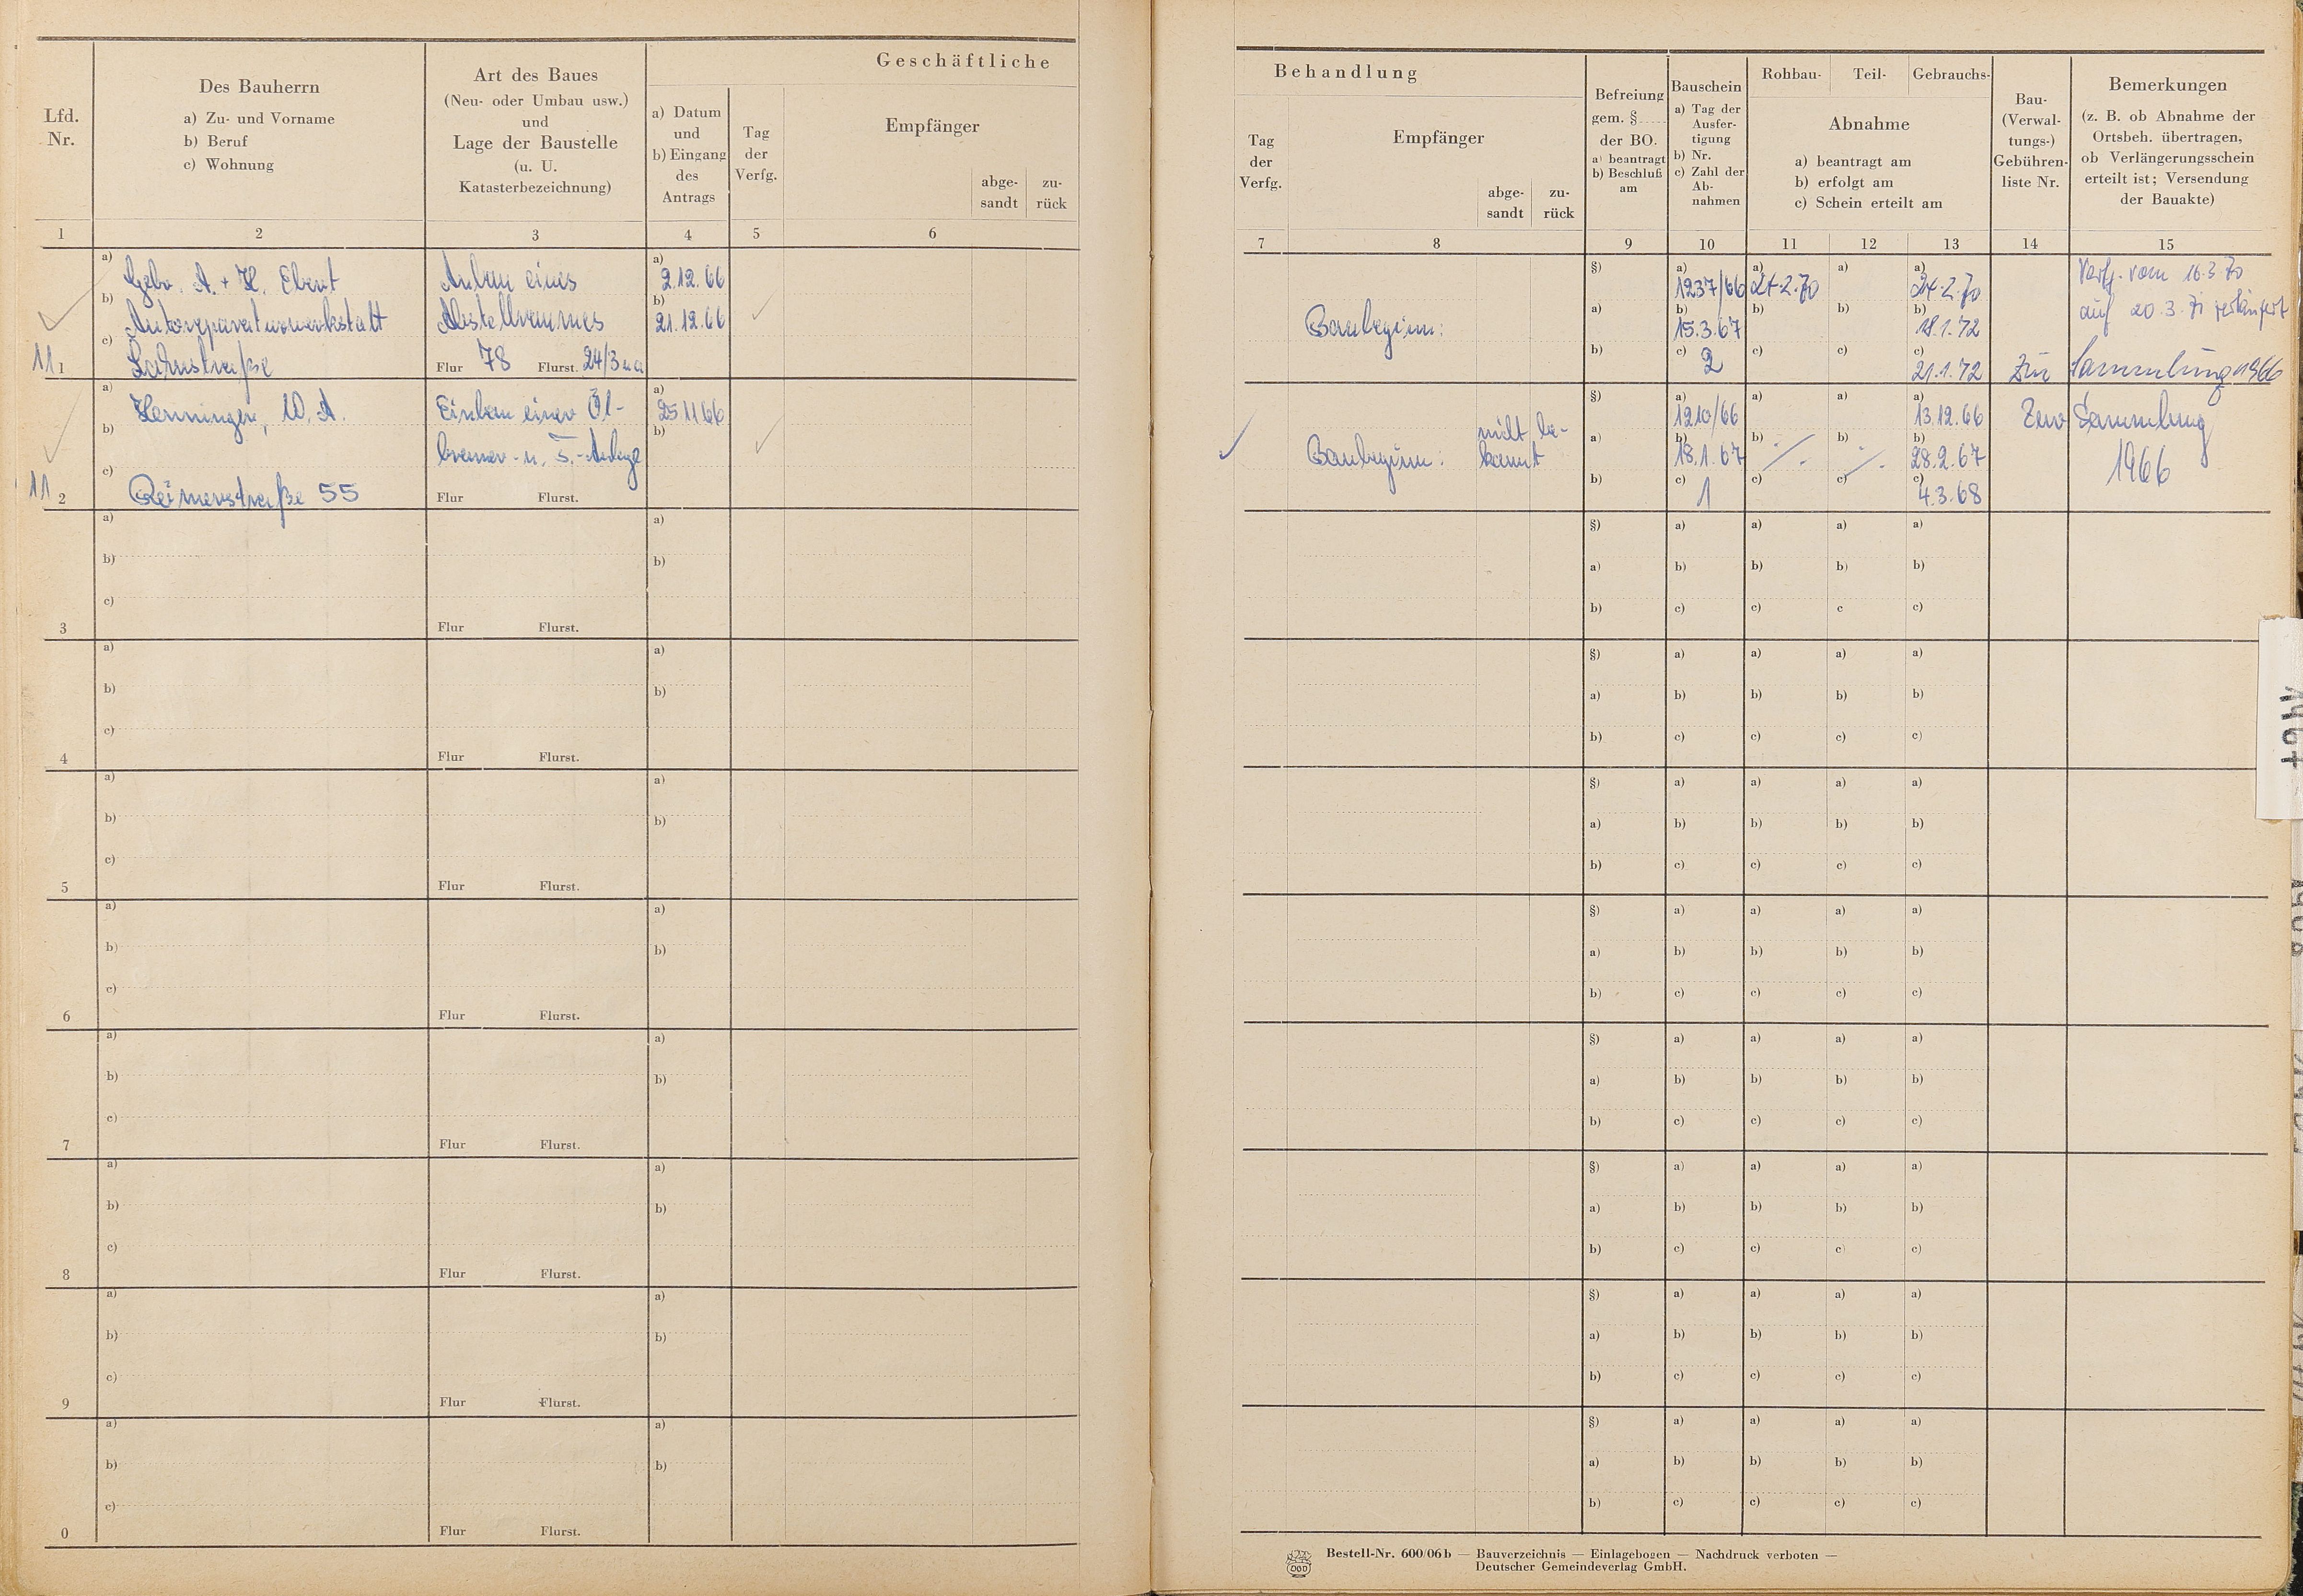 Geschäftliche
Lfd.
Nr.
Des Bauherrn
a) Zu- und Vorname
b) Beruf
c) Wohnung
Art des Baues
(Neu- oder Umbau usw.)
und
Lage der Baustelle
(u. U.
Katasterbezeichnung)
a) Datum
und
b) Eingang
des
Antrags
Tag
der
Verfg.
Empfänger
abge-
sandt
zu-
rück
1 2 3 4 5 6
a) Gebr. A. + H. Ebert
b) Autoreparaturwerkstatt
c) Lahnstraße
Anbau eines
Abstellraumes
Flur 78 Flurst. 24/3 u a
a) 2.12.66
b) 21.12.66
11 1
a) Henninger, W. A.
b)
c) Reimerstraße 55
Einbau einer Öl-
brenner- u. T.-Anlage
Flur Flurst.
a) 25.11.66
b)
11 2
a)
b)
c)
3
Flur Flurst.
a)
b)
a)
b)
c)
4
Flur Flurst.
a)
b)
a)
b)
c)
5
Flur Flurst.
a)
b)
a)
b)
c)
6
Flur Flurst.
a)
b)
a)
b)
c)
7
Flur Flurst.
a)
b)
a)
b)
c)
8
Flur Flurst.
a)
b)
a)
b)
c)
9
Flur Flurst.
a)
b)
a)
b)
c)
0
Flur Flurst.
a)
b)
Behandlung
Tag
der
Verfg.
Empfänger
abge-
sandt
zu-
rück
Befreiung
gem. §
der BO.
a) beantragt
b) Beschluß
am
Bauschein
a) Tag der
Ausfer-
tigung
b) Nr.
c) Zahl der
Ab-
nahmen
Rohbau- Teil- Gebrauchs-
Abnahme
a) beantragt am
b) erfolgt am
c) Schein erteilt am
Bau-
(Verwal-
tungs-)
Gebühren-
liste Nr.
Bemerkungen
(z. B. ob Abnahme der
Ortsbeh. übertragen,
ob Verlängerungsschein
erteilt ist; Versendung
der Bauakte)
7 8 9 10 11 12 13 14 15
Baubeginn:
§)
a)
b)
a) 1237/66
b) 15.3.67
c) 2
a) 24.2.70
b)
c)
a)
b)
c)
a) 24.2.70
b) 18.1.72
c) 21.1.72
Verfg. vom 16.3.70
auf 20.3.71 verlängert
Zur Sammlung 1966
Baubeginn: nicht be-
kannt
§)
a)
b)
a) 1210/66
b) 18.1.67
c) 1
a)
b)
c)
a)
b)
c)
a) 13.12.66
b) 28.2.67
c) 4.3.68
Zur Sammlung
1966
§) a) a) a) a)
a) b) b) b) b)
b) c) c) c c)
§) a) a) a) a)
a) b) b) b) b)
b) c) c) c) c)
§) a) a) a) a)
a) b) b) b) b)
b) c) c) c) c)
§) a) a) a) a)
a) b) b) b) b)
b) c) c) c) c)
§) a) a) a) a)
a) b) b) b) b)
b) c) c) c) c)
§) a) a) a) a)
a) b) b) b) b)
b) c) c) c) c)
§) a) a) a) a)
a) b) b) b) b)
b) c) c) c) c)
§) a) a) a) a)
a) b) b) b) b)
b) c) c) c) c)
Bestell-Nr. 600/06 b — Bauverzeichnis — Einlagebogen — Nachdruck verboten —
Deutscher Gemeindeverlag GmbH.